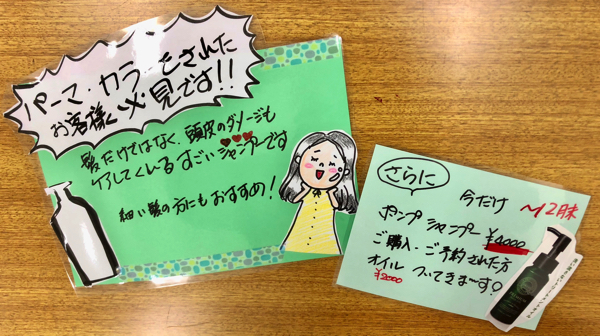 パーマ・カラーをされた
お客様必見です!!
髪だけではなく、頭皮のダメージも
ケアしてくれるすごいシャンプーです
細い髪の方にもおすすめ!
さらに
今だけ
〜12月末
ポンプシャンプー ¥4000
ご購入・ご予約された方
オイル ついてきまーす!
¥2000